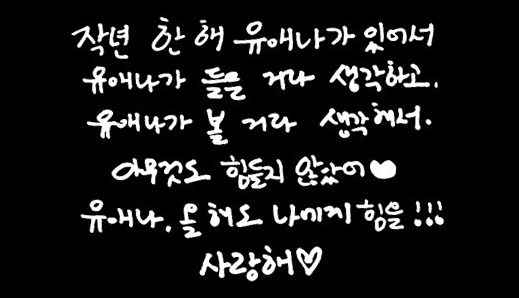 작년 한 해 유애나가 있어서
유애나가 들을 거라 생각하고,
유애나가 볼 거라 생각해서.
아무것도 힘들지 않았어♥
유애나. 올 해도 나에게 힘을!!!
사랑해♡